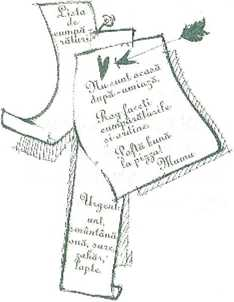 Lista
de
cumpă
rături
Nu sunt acasă
după-amiază.
Rog faceți
cumpărăturile
și ordine.
Poftă bună
la pizza!
Mama
Urgent
unt,
smântână
ouă, sare,
zahăr,
lapte